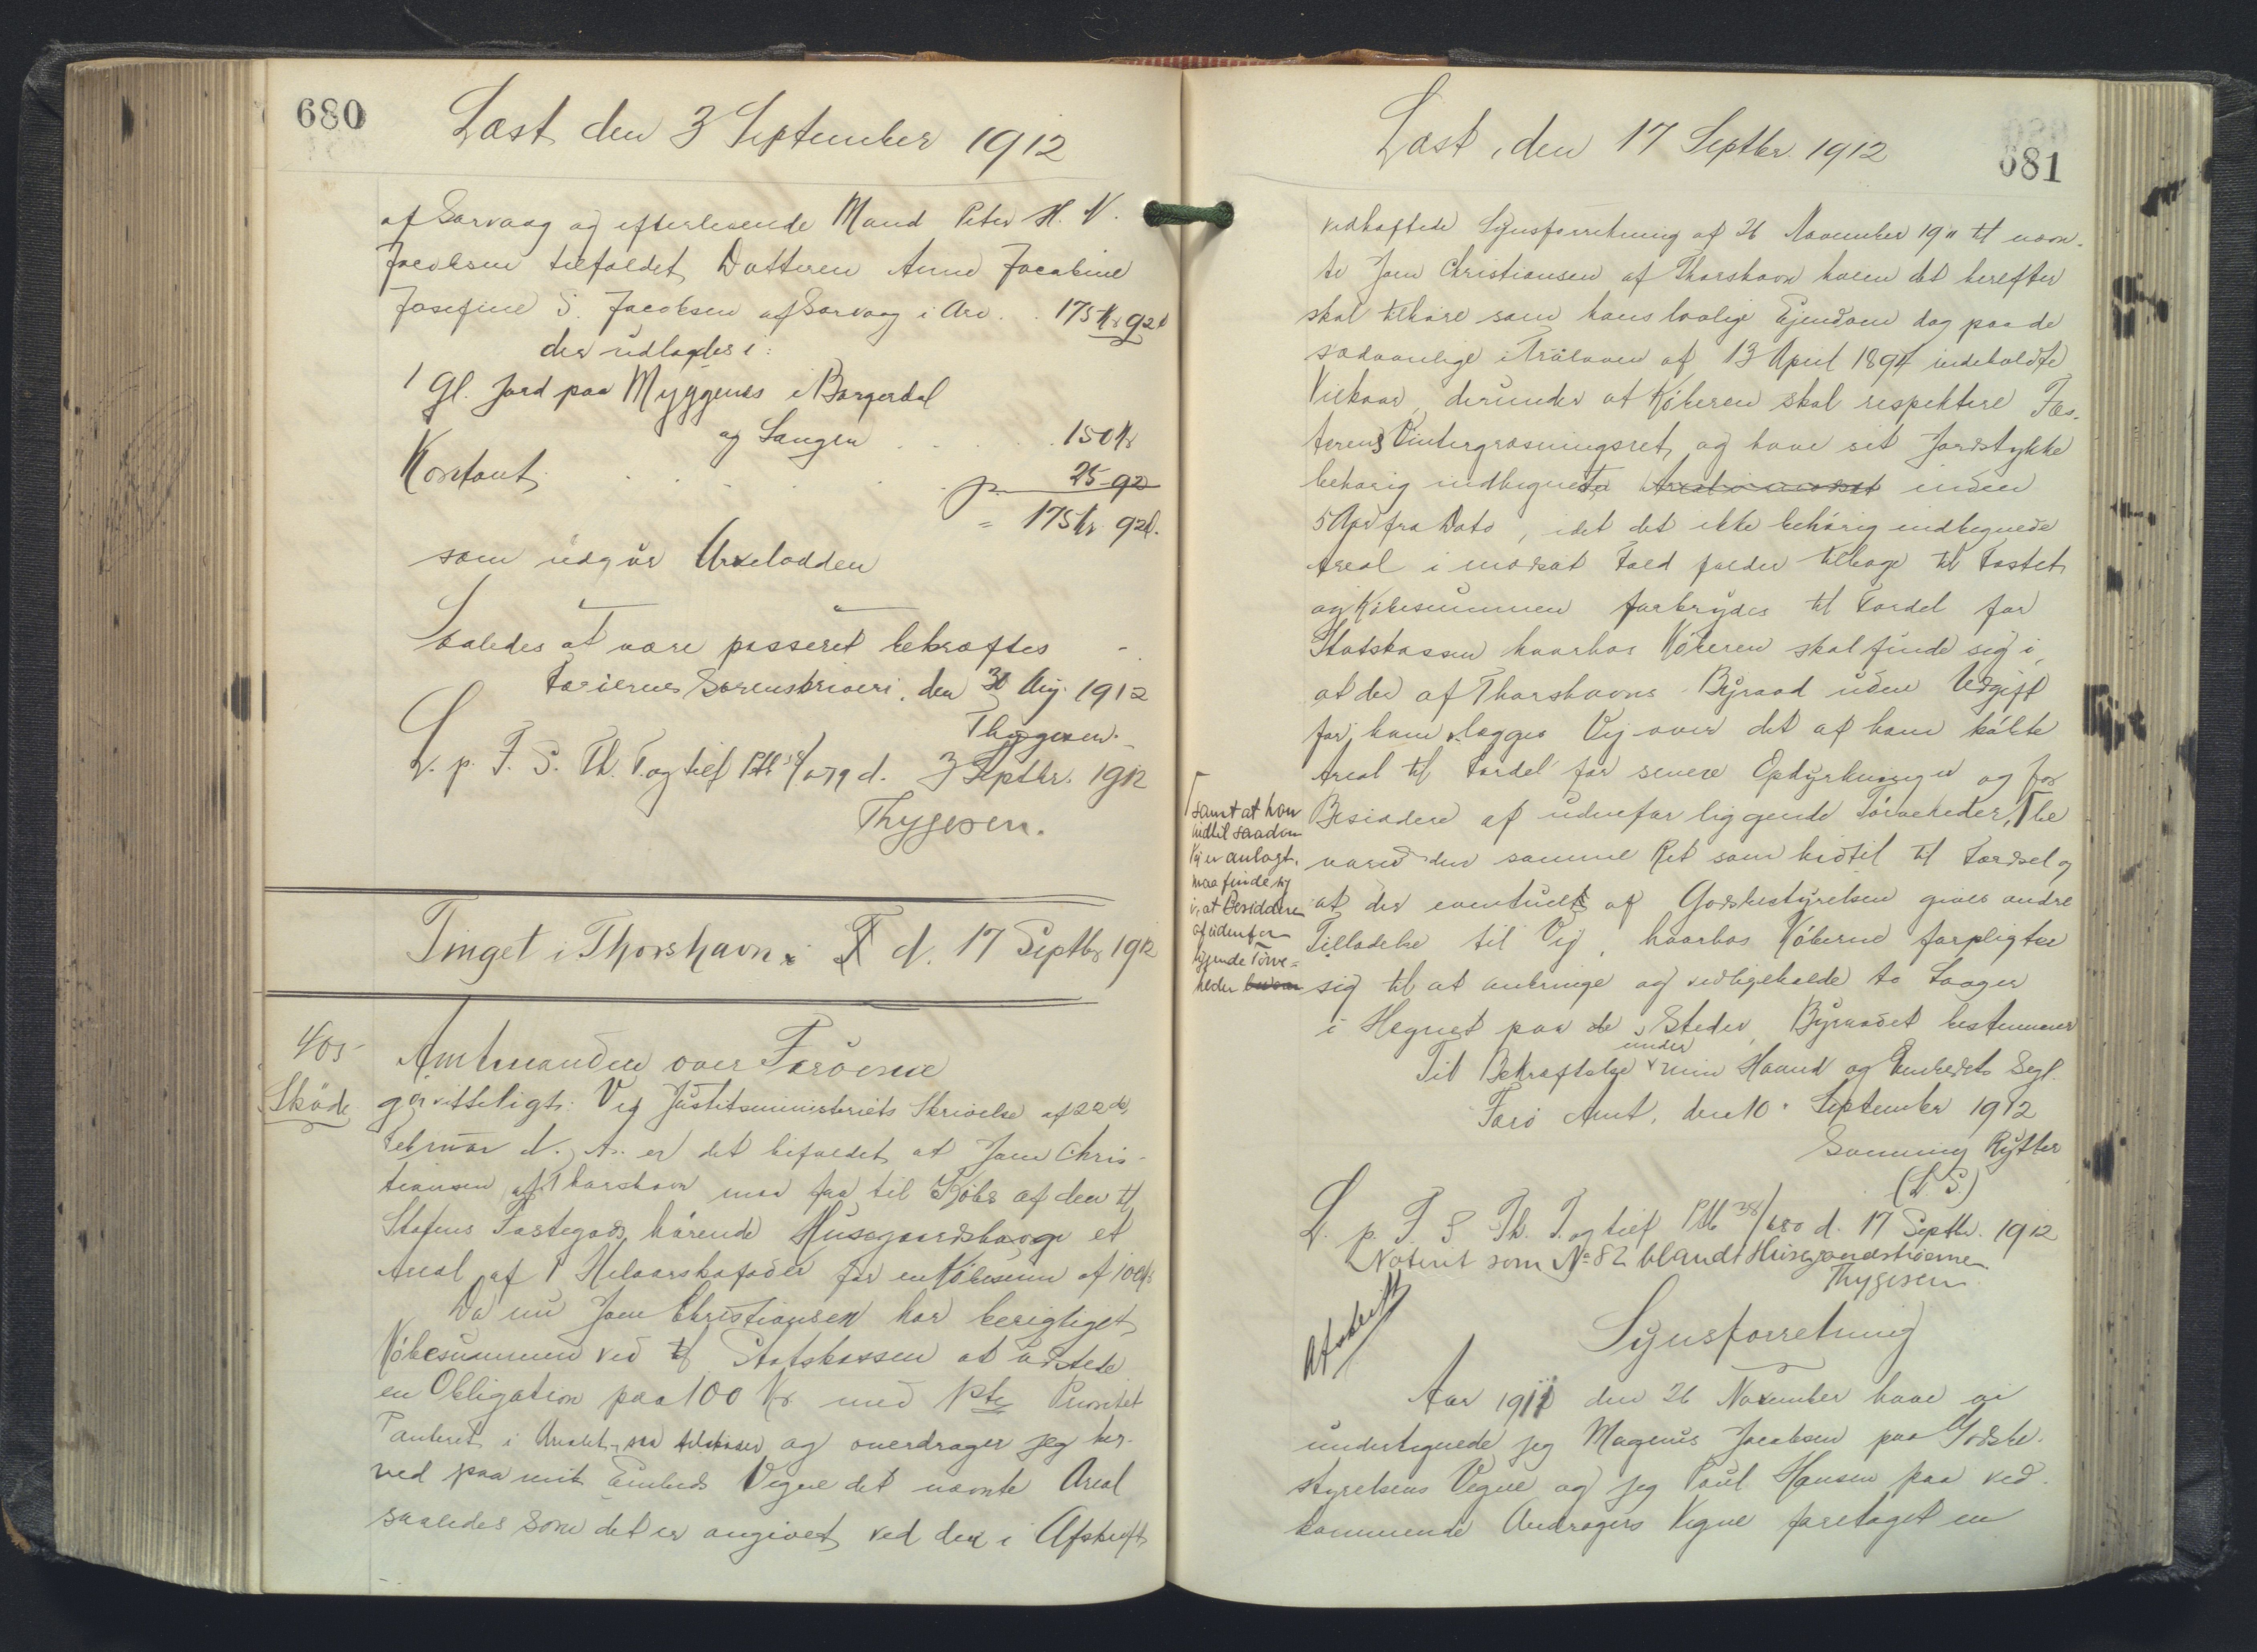 680
Læst den 3 September 1912
af Sørvaag og efterlevende Mand Peter H. N.
Jacobsen tilfaldet Datteren Anne Jacobine
Josefine S. Jacobsen af Sørvaag i Arv . . 175 Kr 92 Ø
der udlagdes i:
1 Gl. Jord paa Myggenæs i Borgerdal
og Langen . . . . 150 Kr
Kontant . . . . . 25 - 92
= 175 Kr. 92 Ø.
som udgør Arvelodden
Saaledes at være passeret bekræftes
Færøernes Sorenskriveri, den 30 Aug. 1912
Thygesen.
L. p. F. S. Th. T. og tilf Ptb 38/679 d. 3 Septbr. 1912
Thygesen.
Tinget i Thorshavn; F d. 17 Septbr 1912
405
Skøde
Amtmanden over Færøerne
gør vitterligt: Ved Justitsministeriets Skrivelse af 22de
Februar d. A. er det bifaldet at Joen Chris-
tiansen af Thorshavn maa faa til Købs af den til
Statens Fæstegods hørende Husegaardshauge et
Areal af 1 Helaarskofoder for en Købesum af 100 Kr
Da nu Joen Christiansen har berigtiget
Købesummen ved til Statskassen at udstede
en Obligation paa 100 Kr med 1ste Prioritet
Panteret i Arealet, saa tilskøder og overdrager jeg her-
ved paa mit Embeds Vegne det nævnte Areal
saaledes som det er angivet ved den i Afskrift
681
Læst, den 17 Septbr. 1912
vedhæftede Synsforretning af 26 November 1911 til nævn-
te Joen Christiansen af Thorshavn hvem det herefter
skal tilhøre som hans lovlige Ejendom dog paa de
sædvanlige i Trøloven af 13 April 1894 indeholdte
Vilkaar, derunder at Køberen skal respektere Fæs-
terens Vintergræsningsret og have sit Jordstykke
behørig indhegnet inden
5 Aar fra Dato, idet det ikke behørig indhegnede
Areal i modsat Fald falder tilbage til Fæstet
og Købesummen forbrydes til Fordel for
Statskassen hvorhos Køberen skal finde sig i,
at der af Thorshavns Byraad uden Udgift
for ham lægges Vej over det af ham købte
Areal til Fordel for senere Opdyrkninger og for
Besiddere af udenfor liggende Tørveheder, be
varer den samme Ret som hidtil til Færdsel og
at der eventuelt af Godsbestyrelsen gives andre
Tilladelse til Vej, hvorhos Køberne forpligter
sig til at anbringe og vedligeholde to Laager
i Hegnet paa de Steder, Byraadet bestemmer
samt at han
indtil saadan
Vej er anlagt,
maa finde sig
i, at Besiddere
af udenfor
liggende Tørve=
heder
Til Bekræftelse under min Haand og Embedets Segl.
Færø Amt, den 10. September 1912
Svenning Rytter
(L S.)
L. p. F. S Th. T. og tilf Ptb 38/680 d. 17 Septbr. 1912
Noteret som № 82 blandt Husegaardstrøerne
Thygesen
Afskrift
Synsforretning
Aar 1911 den 26 November have vi
undertegnede jeg Magnus Jacobsen paa Godsbe-
styrelsens Vegne og jeg Poul Hansen paa ved-
kommende Andragers Vegne foretaget en